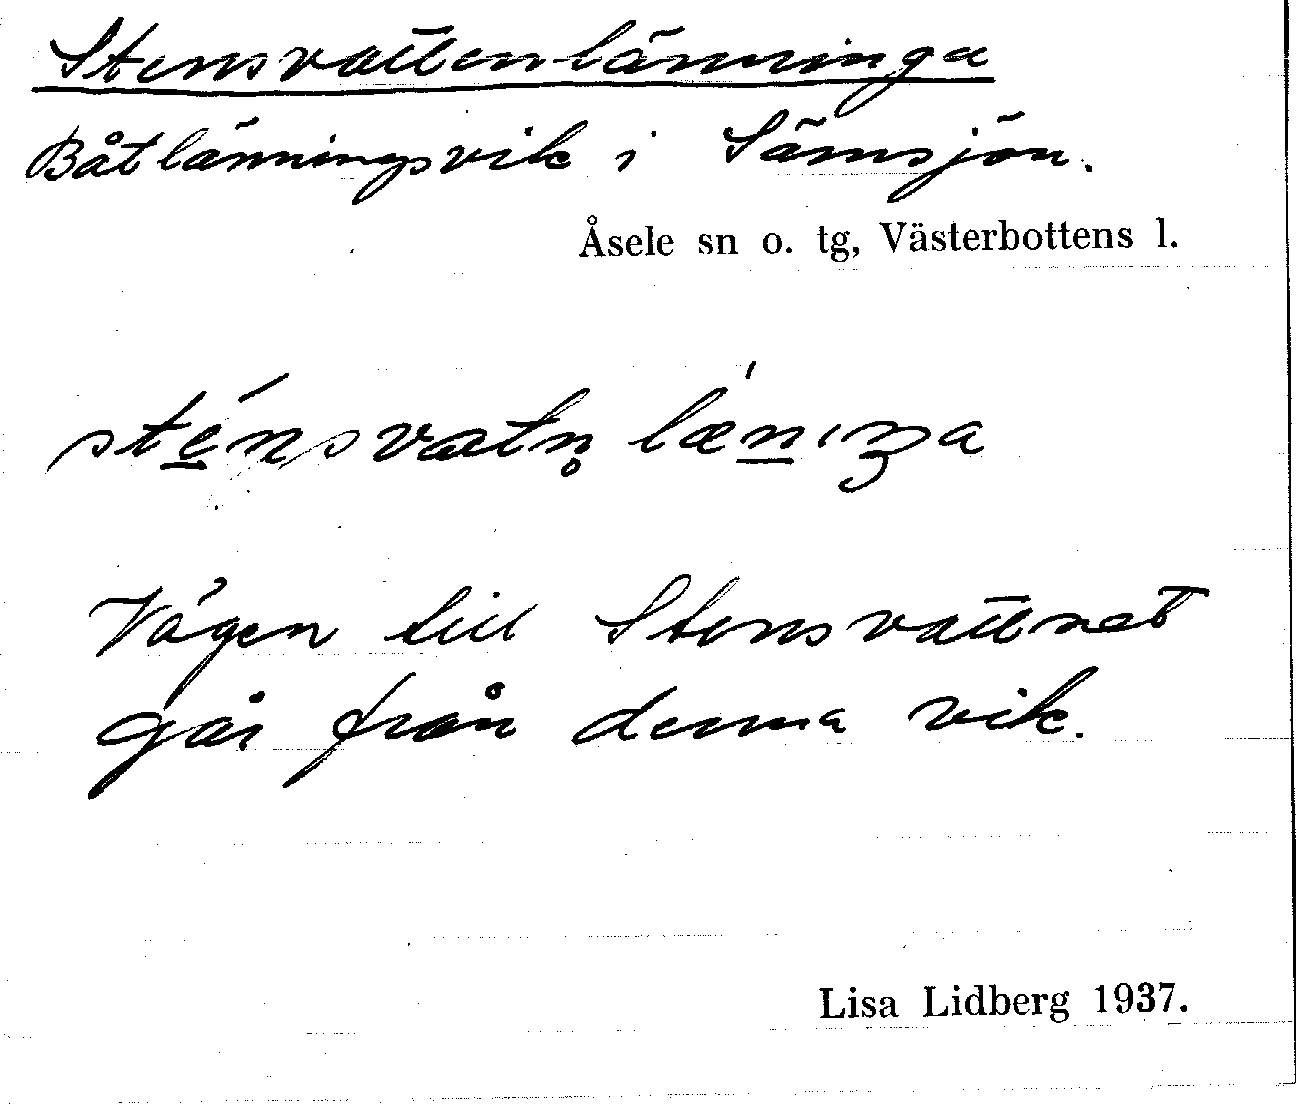 Stensvattenlänninga
Båtlänningsvik i Sämsjön.
Åsele sn o. tg, Västerbottens l.
sté̱nsvatn̥ læ̱ńıŋa
Vägen till Stensvattnet
går från denna vik.
Lisa Lidberg 1937.